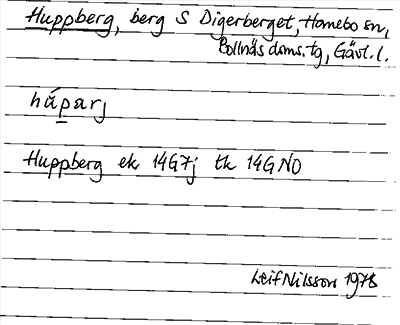 Huppberg, berg S Digerberget, Hanebo sn,
Bollnäs doms. tg, Gävl. l.
húparj
Huppberg ek 14G7j tk 14GNO
Leif Nilsson 1978